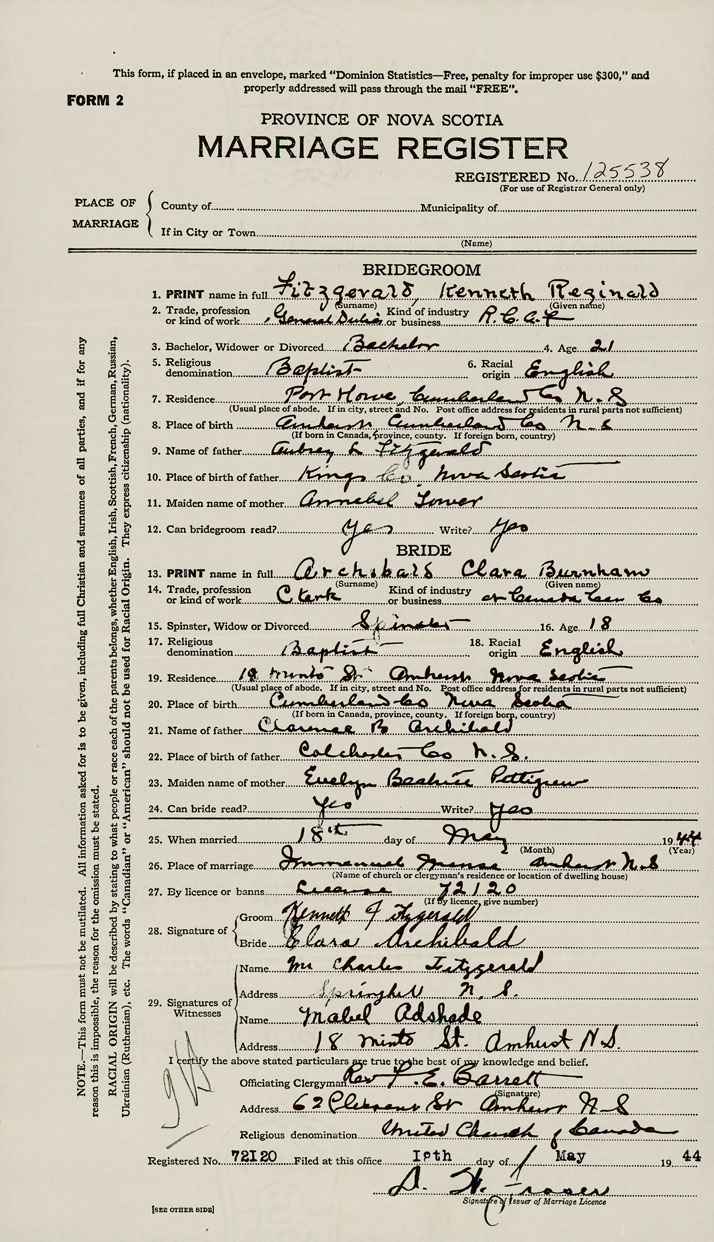 This form, if placed in an envelope, marked "Dominion Statistics—Free, penalty for improper use $300," and
properly addressed will pass through the mail "FREE".
FORM 2
PROVINCE OF NOVA SCOTIA
MARRIAGE REGISTER
REGISTERED No. 125538
(For use of Registrar General only)
PLACE OF MARRIAGE
County of Municipality of
If in City or Town
(Name)
BRIDEGROOM
1. PRINT name in full Fitzgerald, Kenneth Reginald
(Surname) (Given name)
2. Trade, profession or kind of work General Duties Kind of industry or business R.C.A.F.
3. Bachelor, Widower or Divorced Bachelor 4. Age 21
5. Religious denomination Baptist 6. Racial origin English
7. Residence Port Howe, Cumberland Co N.S
(Usual place of abode. If in city, street and No. Post office address for residents in rural parts not sufficient)
8. Place of birth Amherst Cumberland Co N.S
(If born in Canada, province, county. If foreign born, country)
9. Name of father Aubrey L Fitzgerald
10. Place of birth of father Kings Co. Nova Scotia
11. Maiden name of mother Annabel Tower
12. Can bridegroom read? Yes Write? Yes
BRIDE
13. PRINT name in full Archibald Clara Burnham
(Surname) (Given name)
14. Trade, profession or kind of work Clerk Kind of industry or business at Canada Car Co
15. Spinster, Widow or Divorced Spinster 16. Age 18
17. Religious denomination Baptist 18. Racial origin English
19. Residence 18 Minto St Amherst Nova Scotia
(Usual place of abode. If in city, street and No. Post office address for residents in rural parts not sufficient)
20. Place of birth Cumberland Co Nova Scotia
(If born in Canada, province, county. If foreign born, country)
21. Name of father Clarence B Archibald
22. Place of birth of father Colchester Co N.S.
23. Maiden name of mother Evelyn Beatrice Pettigrew
24. Can bride read? Yes Write? Yes
25. When married 18th day of May 1944
(Month) (Year)
26. Place of marriage Immanuel Manse Amherst N.S
(Name of church or clergyman's residence or location of dwelling house)
27. By licence or banns License 72120
(If by licence, give number)
28. Signature of
Groom Kenneth Fitzgerald
Bride Clara Archibald
29. Signatures of Witnesses
Name Mr Charles Fitzgerald
Address Springhill N.S.
Name Mabel Adshade
Address 18 Minto St. Amherst N.S.
I certify the above stated particulars are true to the best of my knowledge and belief.
Officiating Clergyman Rev. E. Barrett
(Signature)
Address 62 Pleasant St Amherst N-S
Religious denomination United Church of Canada
Registered No. 72120 Filed at this office day of May 1944
D. W. Fraser
Signature of Issuer of Marriage Licence
[SEE OTHER SIDE]
NOTE.—This form must not be mutilated. All information asked for is to be given, including full Christian and surnames of all parties, and if for any
reason this is impossible, the reason for the omission must be stated.
RACIAL ORIGIN will be described by stating to what people or race each of the parents belongs, whether English, Irish, Scottish, French, German, Russian,
Ukrainian (Ruthenian), etc. The words "Canadian" or "American" should not be used for Racial Origin. They express citizenship (nationality).